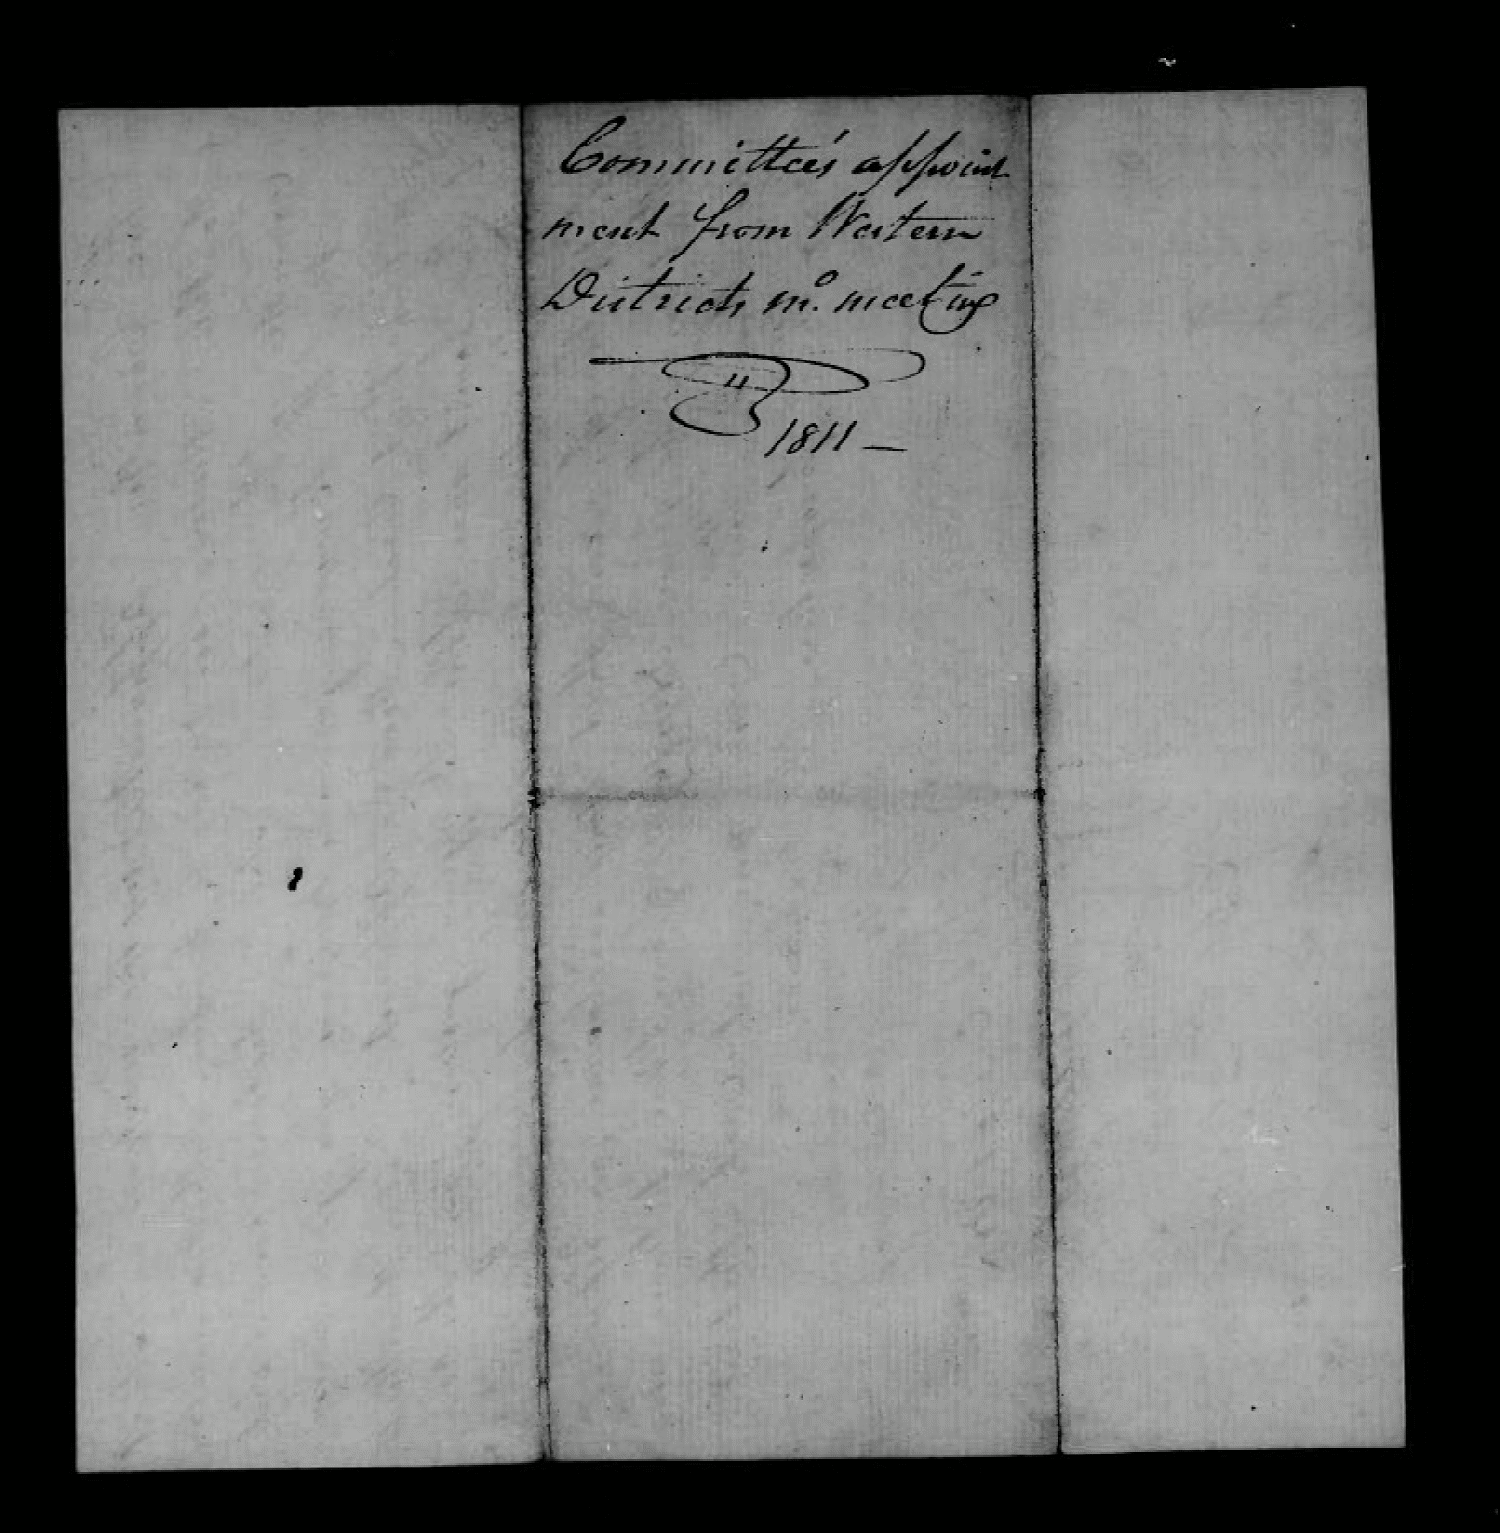 Committee's appoint
ment from Western
Districts mo. meeting
1811 —